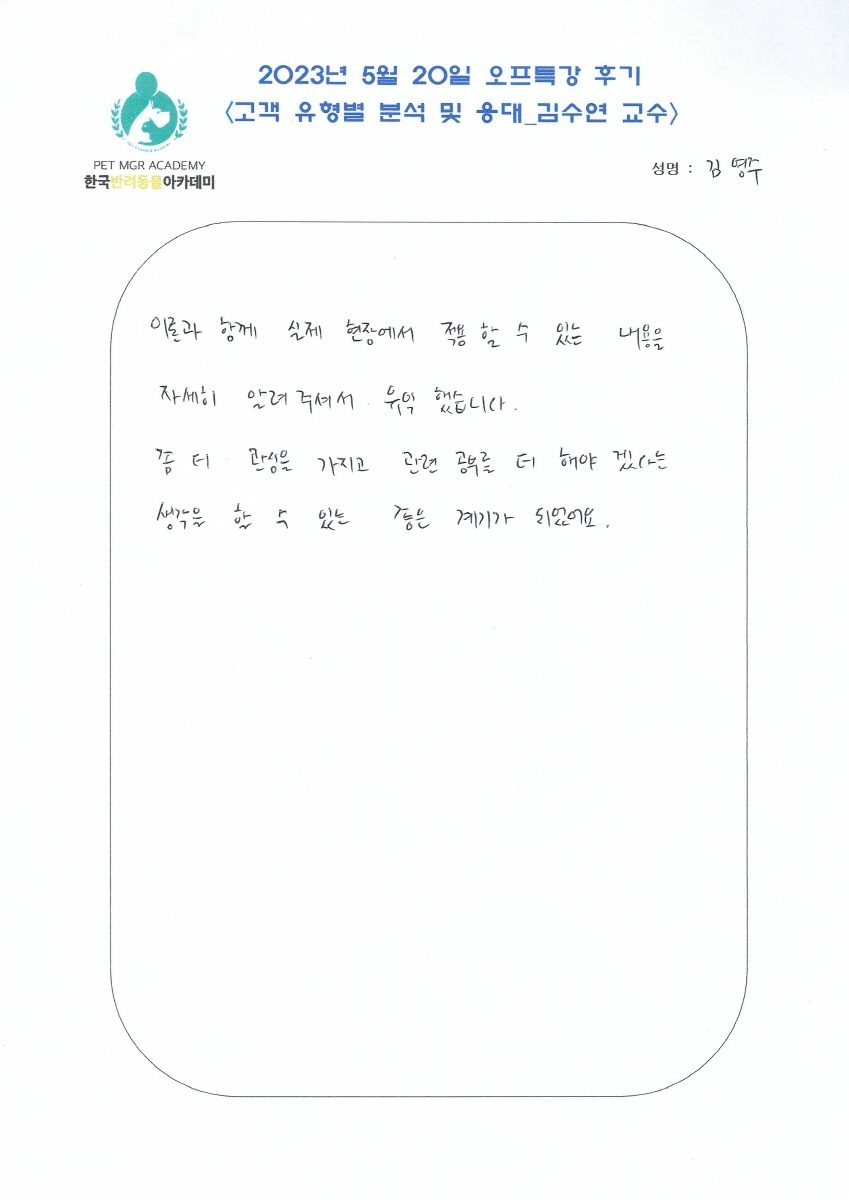 2023년 5월 20일 오프특강 후기
<고객 유형별 분석 및 응대_김수연 교수>
PET MGR ACADEMY
한국반려동물아카데미
성명 : 김영주
이론과 함께 실제 현장에서 적용 할 수 있는 내용을
자세히 알려주셔서 유익 했습니다.
좀 더 관심을 가지고 관련 공부를 더 해야 겠다는
생각을 할 수 있는 좋은 계기가 되었어요.